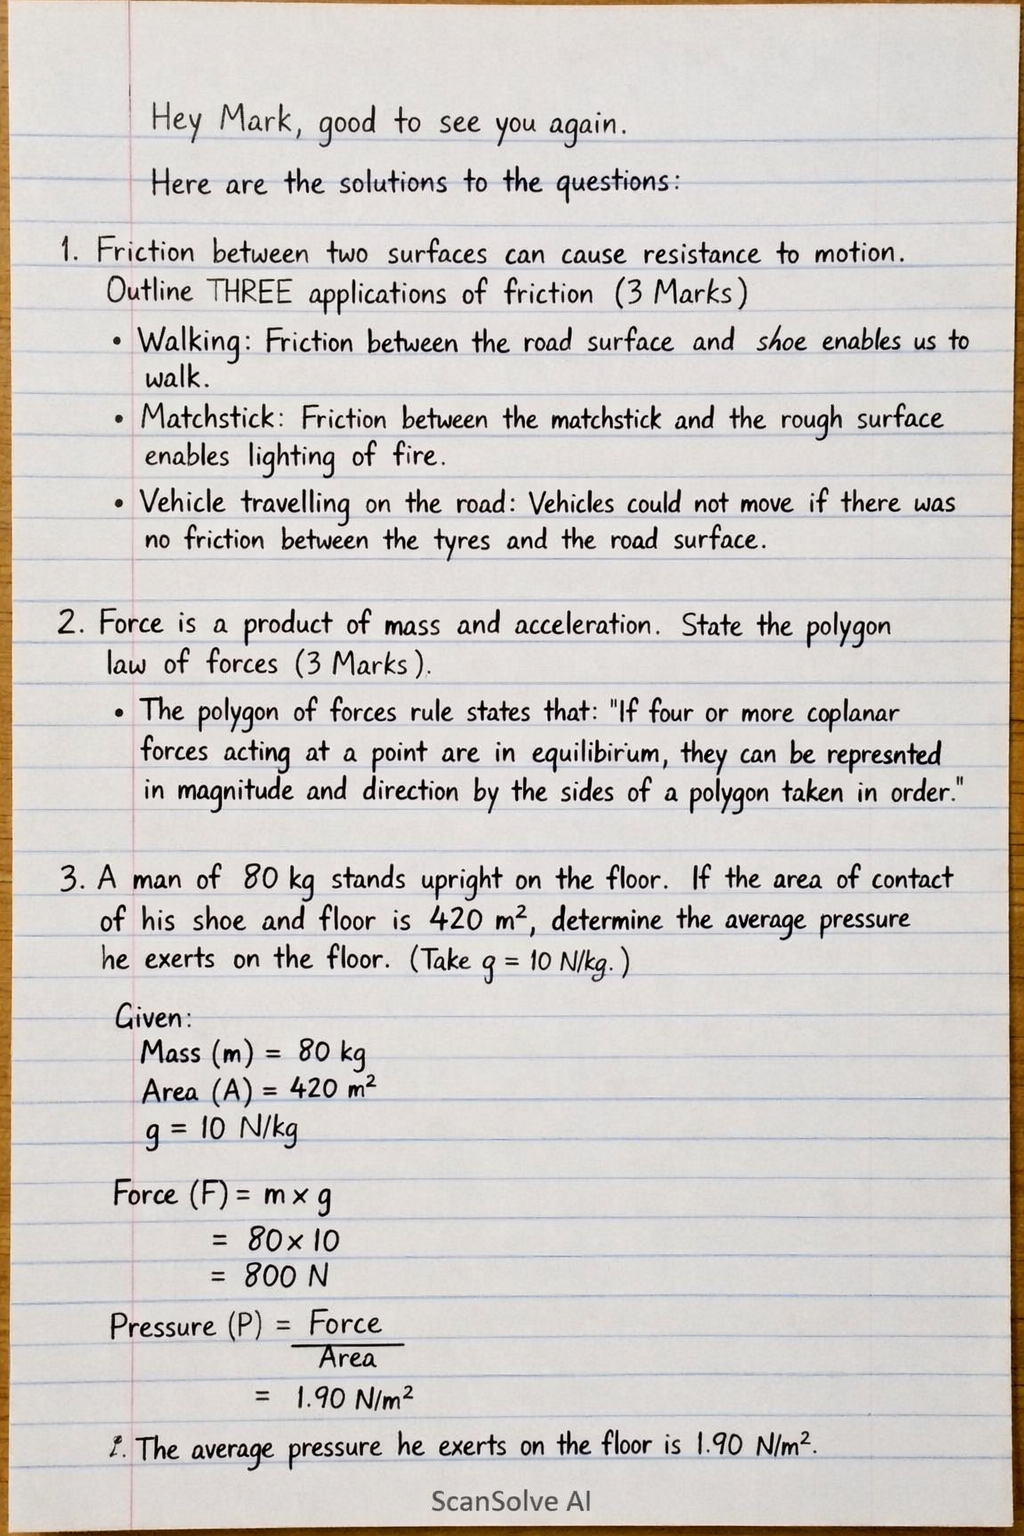 Hey Mark, good to see you again.
Here are the solutions to the questions:
1. Friction between two surfaces can cause resistance to motion.
Outline THREE applications of friction (3 Marks)
• Walking: Friction between the road surface and shoe enables us to
walk.
• Matchstick: Friction between the matchstick and the rough surface
enables lighting of fire.
• Vehicle travelling on the road: Vehicles could not move if there was
no friction between the tyres and the road surface.
2. Force is a product of mass and acceleration. State the polygon
law of forces (3 Marks).
• The polygon of forces rule states that: "If four or more coplanar
forces acting at a point are in equilibirum, they can be represnted
in magnitude and direction by the sides of a polygon taken in order."
3. A man of 80 kg stands upright on the floor. If the area of contact
of his shoe and floor is 420 m², determine the average pressure
he exerts on the floor. (Take g = 10 N/kg.)
Given:
Mass (m) = 80 kg
Area (A) = 420 m²
g = 10 N/kg
Force (F) = m × g
= 80 × 10
= 800 N
Pressure (P) = Force
Area
= 1.90 N/m²
The average pressure he exerts on the floor is 1.90 N/m².
ScanSolve AI